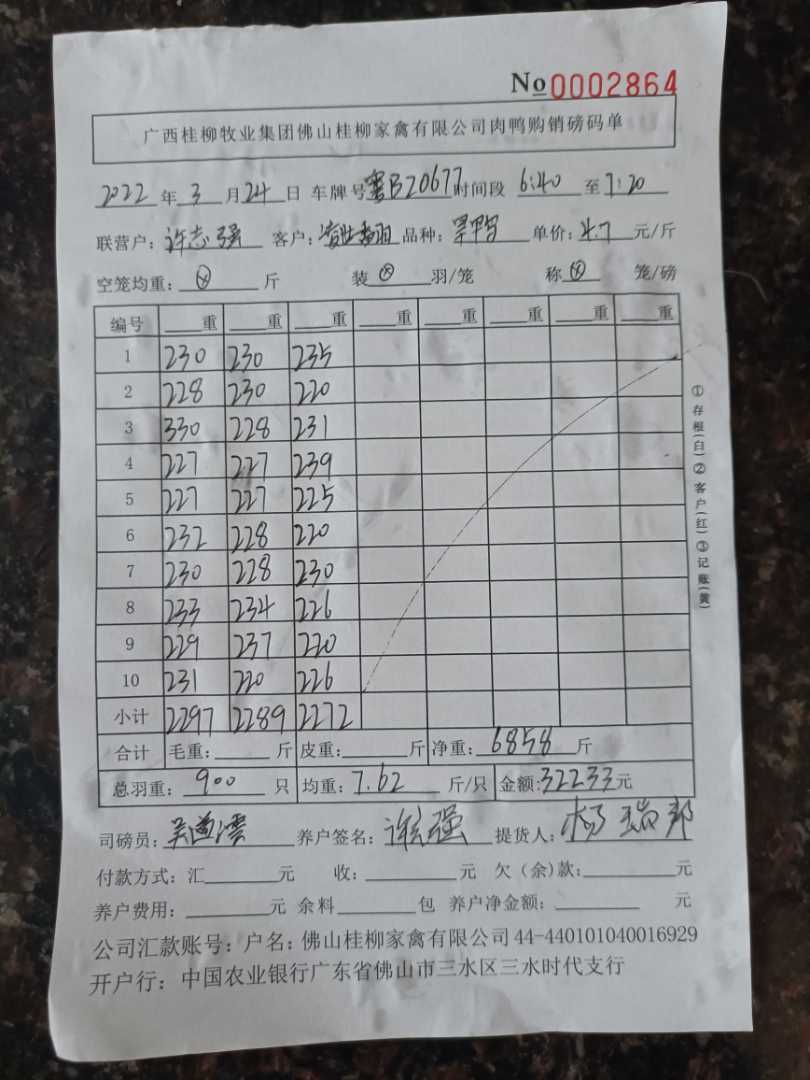 No 0002864
广西桂柳牧业集团佛山桂柳家禽有限公司肉鸭购销磅码单
2022 年 3 月 24 日 车牌号 粤B20677 时间段 6:40 至 7:20
联营户: 许志强 客户: 品种: 单价: 4.7 元/斤
空笼均重: ⊗ 斤 装 ⊗ 羽/笼 称 ⊗ 笼/磅
编号 重 重 重 重 重 重 重 重
1 230 230 235
2 228 230 220
3 330 228 231
4 227 227 239
5 227 227 225
6 232 228 220
7 230 228 230
8 233 234 226
9 229 237 220
10 231 220 226
小计 2297 2289 2272
合计 毛重: 斤 皮重: 斤 净重: 6858 斤
总羽重: 900 只 均重: 7.62 斤/只 金额: 32233 元
司磅员: 养户签名: 许志强 提货人: 杨瑞邦
付款方式: 汇 元 收: 元 欠(余)款: 元
养户费用: 元 余料 包 养户净金额: 元
公司汇款账号: 户名: 佛山桂柳家禽有限公司 44-440101040016929
开户行: 中国农业银行广东省佛山市三水区三水时代支行
①存根(白)②客户(红)③记账(黄)